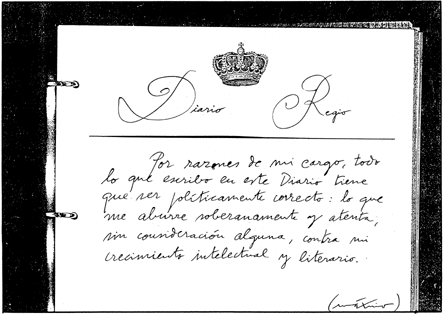 Diario Regio
Por razones de mi cargo, todo
lo que escribo en este Diario tiene
que ser políticamente correcto: lo que
me aburre soberanamente y atenta,
sin consideración alguna, contra mi
crecimiento intelectual y literario.
(máximo)